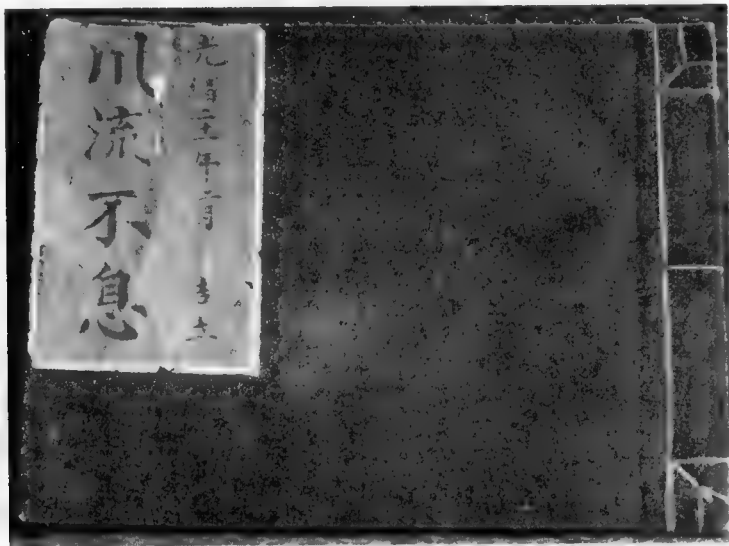 光緒年月 吉立
川流不息